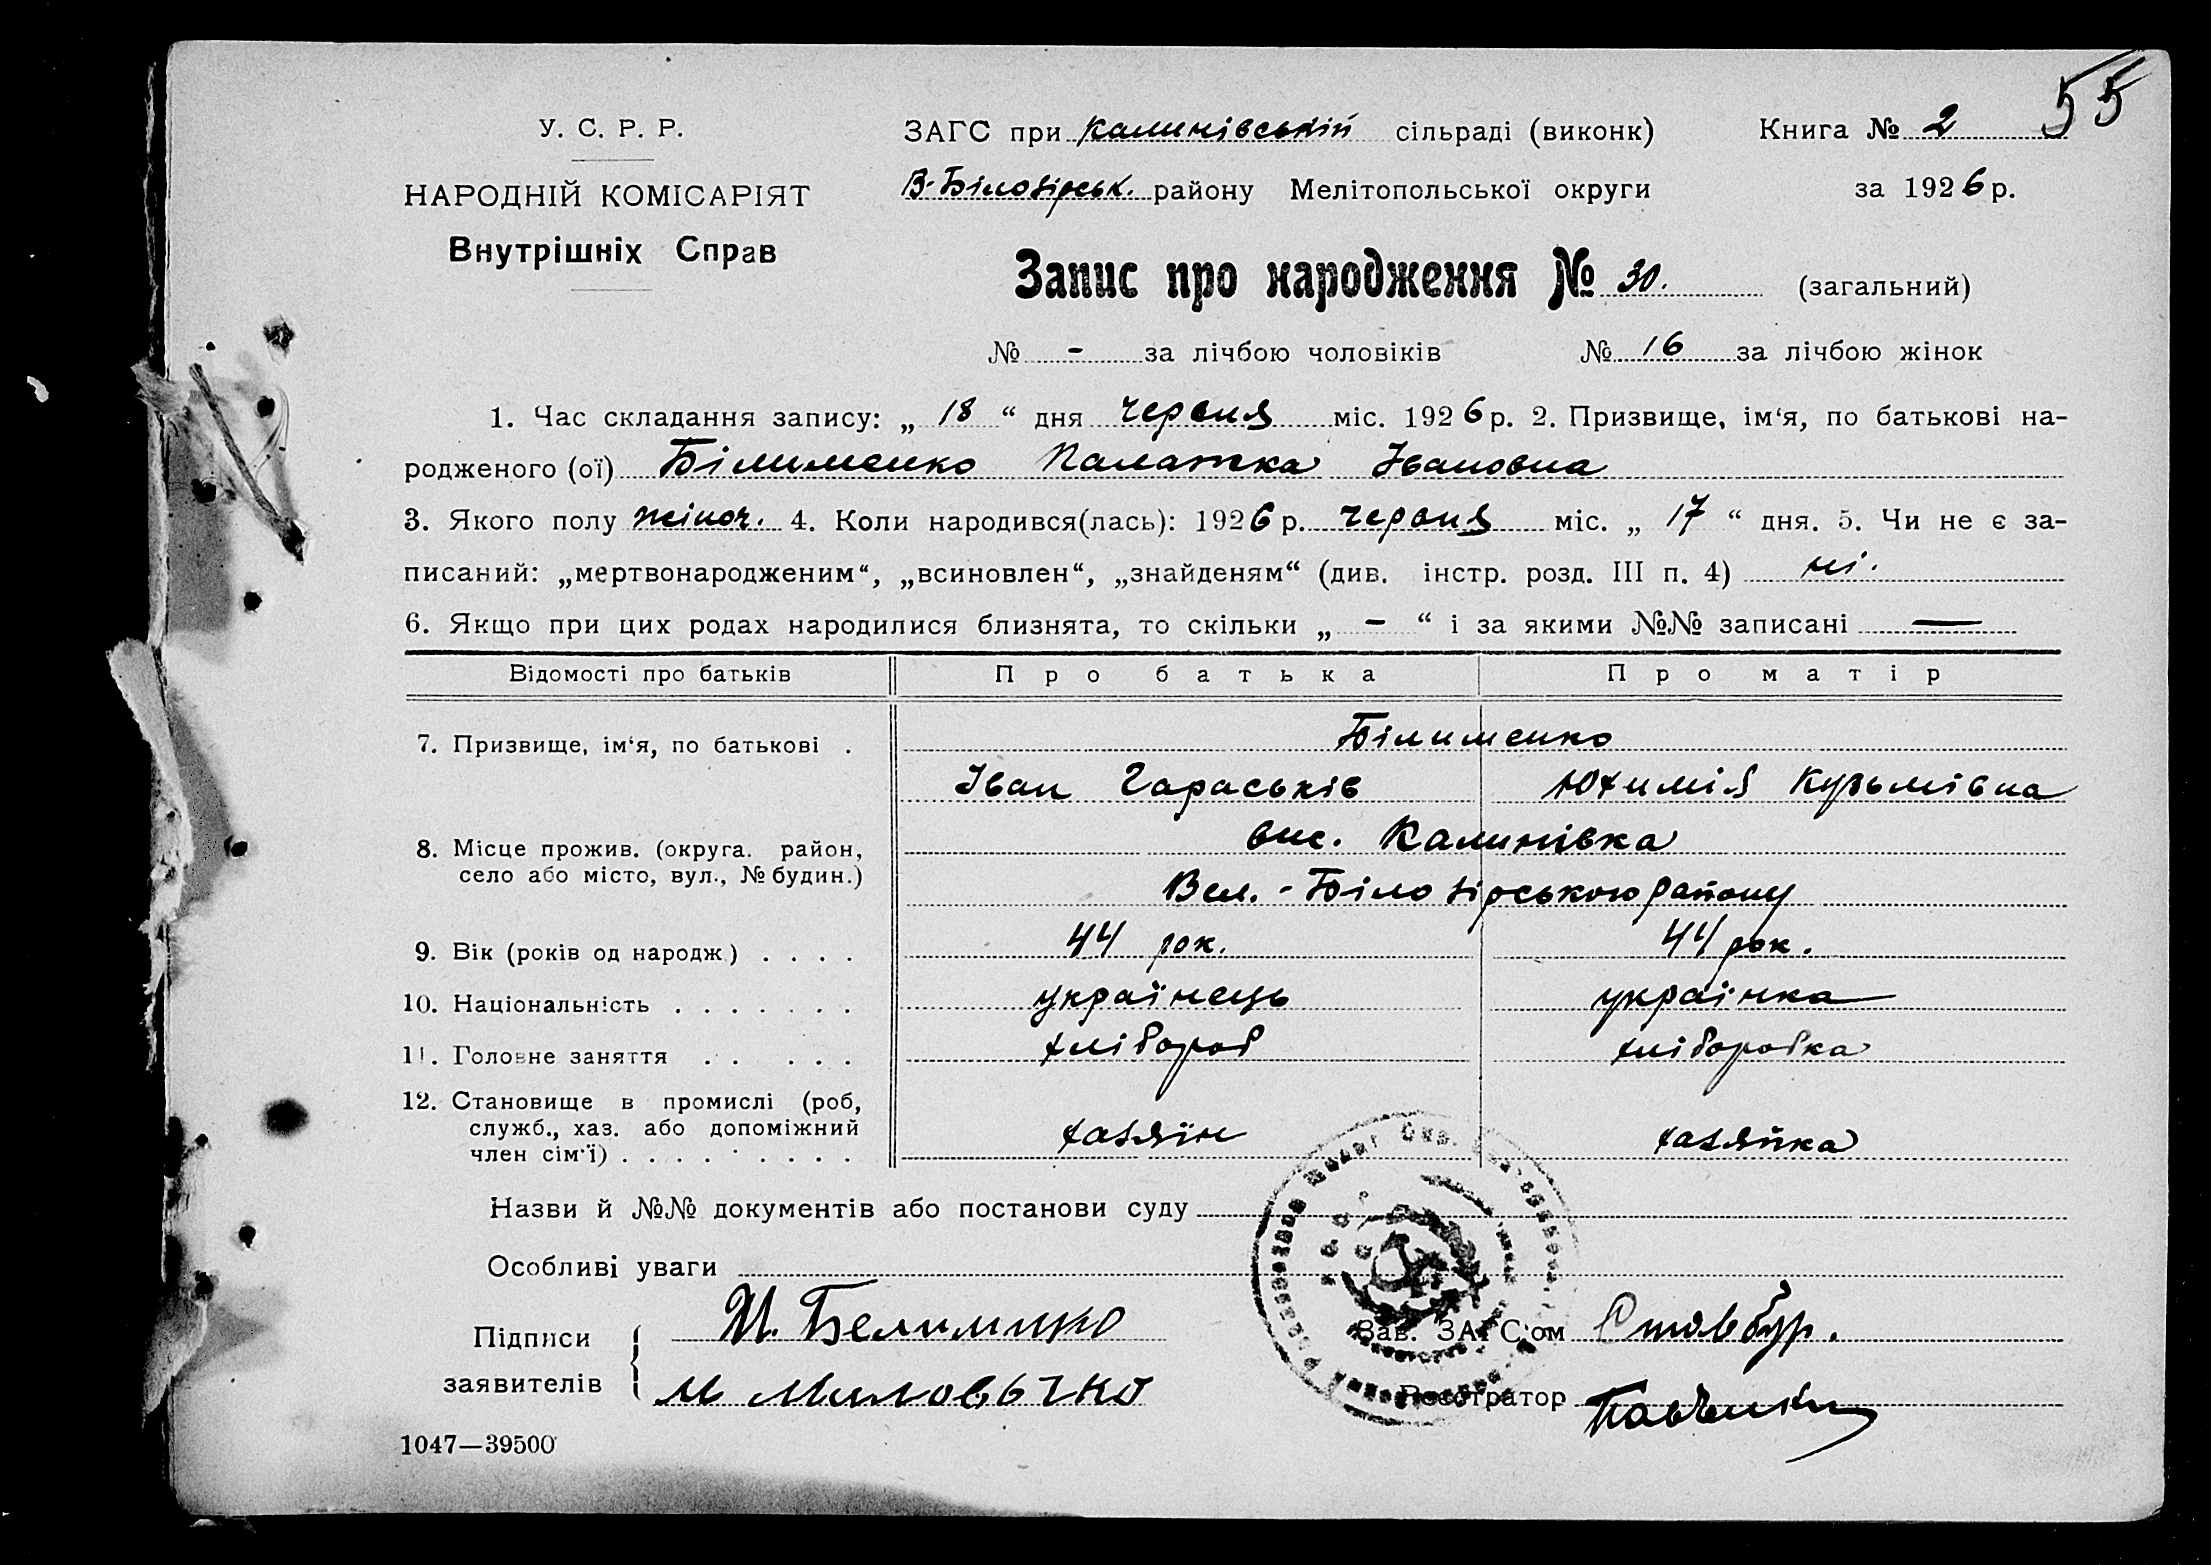 55
У. С. Р. Р.
ЗАГС при Калинівській сільраді (виконк) Книга № 2
НАРОДНІЙ КОМІСАРІЯТ
В-Білозірськ. району Мелітопольської округи за 1926 р.
Внутрішніх Справ
Запис про народження № 30. (загальний)
№ - за лічбою чоловіків № 16 за лічбою жінок
1. Час складання запису: „ 18 “ дня червня міс. 1926 р. 2. Призвище, ім‘я, по батькові на-
родженого (ої) Білименко Палажка Івановна
3. Якого полу жіноч. 4. Коли народився(лась): 1926 р. червня міс. „ 17 “ дня. 5. Чи не є за-
писаний: „мертвонародженим“, „всиновлен“, „знайденям“ (див. інстр. розд. III п. 4) ні.
6. Якщо при цих родах народилися близнята, то скільки „ - “ і за якими №№ записані —
Відомості про батьків Про батька Про матір
7. Призвище, ім‘я, по батькові . Білименко
Іван Гараськів Юхимія Кузьмівна
8. Місце прожив. (округа. район, вис. Калинівка
село або місто, вул., № будин.) Вел.-Білозірського району
9. Вік (років од народж.) . . . . 44 рок. 44 рок.
10. Національність . . . . . . . українець українка
11. Головне заняття . . . . . хлібороб хлібороbка
12. Становище в промислі (роб,
служб., хаз. або допоміжний хазяїн хазяйка
член сім‘ї) . . . . . . . . .
Назви й №№ документів або постанови суду
Особливі уваги
Підписи И. Белимшко Зав. ЗАГС‘ом Стовбур.
заявителів М Реєстратор
1047—39500